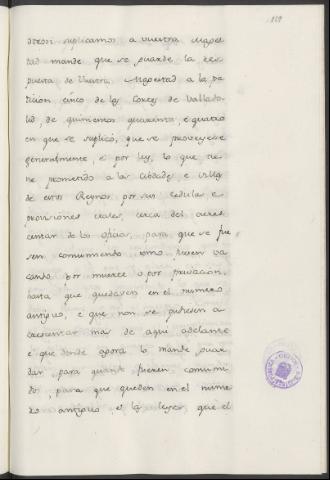 119
dores: suplicamos a vuestra Mages
tad mande que se guarde la res
puesta de vuestra Magestad a la pe
ticion cinco de las Cortes de Vallado
lid, de quinientos quarenta, e quatro
en que se suplicó, que se proveyese
generalmente, e por ley, lo que tie
ne prometido a las Cibdades e villas
de estos Reynos por sus cedulas e
provisiones reales, cerca del acres
centar de los oficios, para que se fue
sen consumiendo como fuesen va
cando por muerte o por privacion,
hasta que quedasen en el numero
antiguo, e que non se pudiesen a
crescentar mas de aqui adelante
e que donde agora lo mande guar
dar para quando fueren consumi
do, para que queden en el nume
ro antiguo, e las leyes, que el